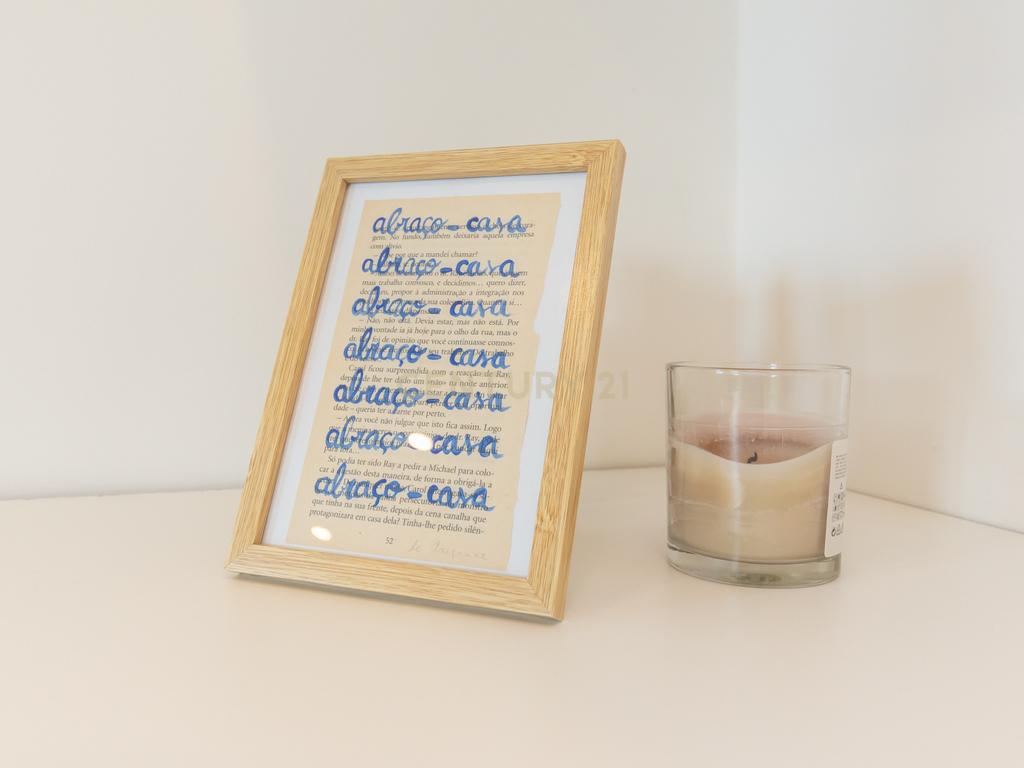 abraço-casa
gem. No fundo, também deixaria aquela empresa
com alívio.
por que a mandei chamar!
abraço-casa
mais trabalha connosco, e decidimos... quero dizer,
propor à administração a integração nos
abraço-casa
– Não, não está. Devia estar, mas não está. Por
minha vontade ia já hoje para o olho da rua, mas o
foi de opinião que você continuasse connos-
abraço-casa
Carol ficou surpreendida com a reacção de Ray,
depois de lhe ter dado um «não» na noite anterior.
abraço-casa
dade – queria ter a carne por perto.
– Agora você não julgue que isto fica assim. Logo
abraço-casa
Só podia ter sido Ray a pedir a Michael para colo-
car a questão desta maneira, de forma a obrigá-la a
abraço-casa
que tinha na sua frente, depois da cena canalha que
protagonizara em casa dela? Tinha-lhe pedido silên-
52
CENTURY 21